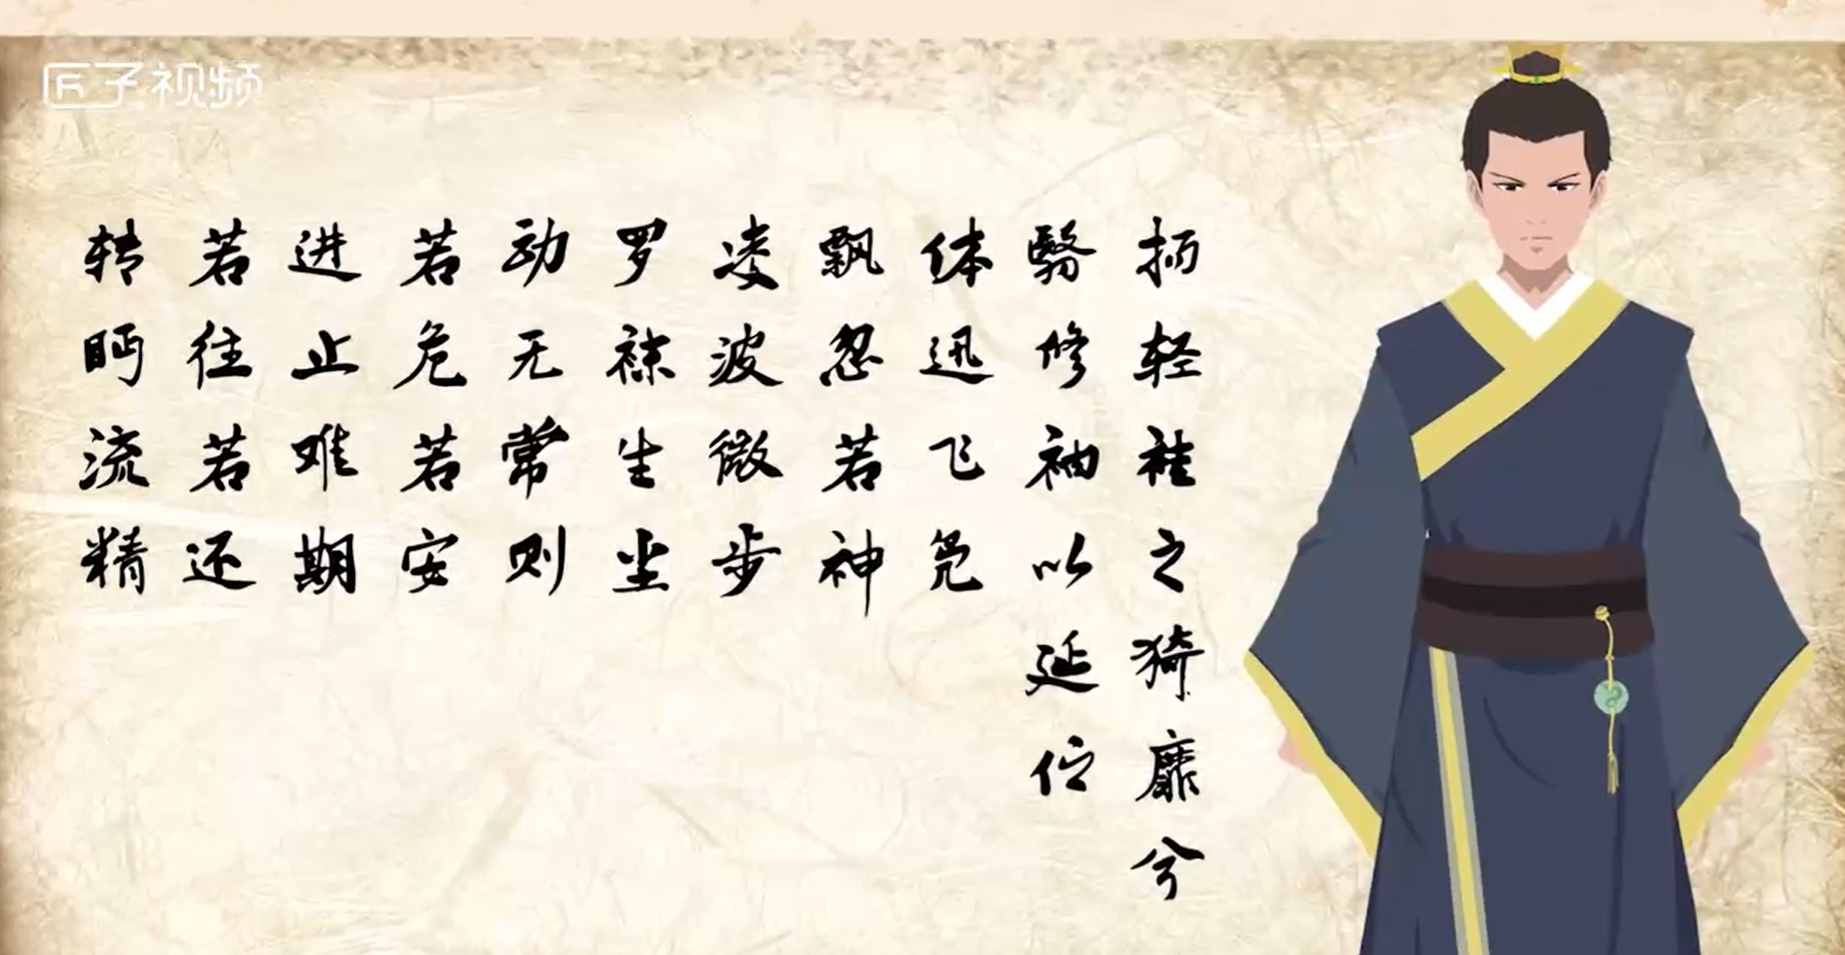 匠子视频
扬轻袿之猗靡兮
翳修袖以延伫
体迅飞凫
飘忽若神
凌波微步
罗袜生尘
动无常则
若危若安
进止难期
若往若还
转眄流精